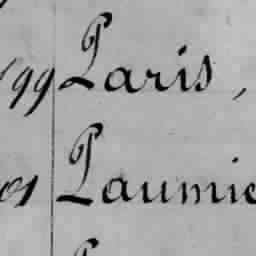 199 Paris,
01 Paumie